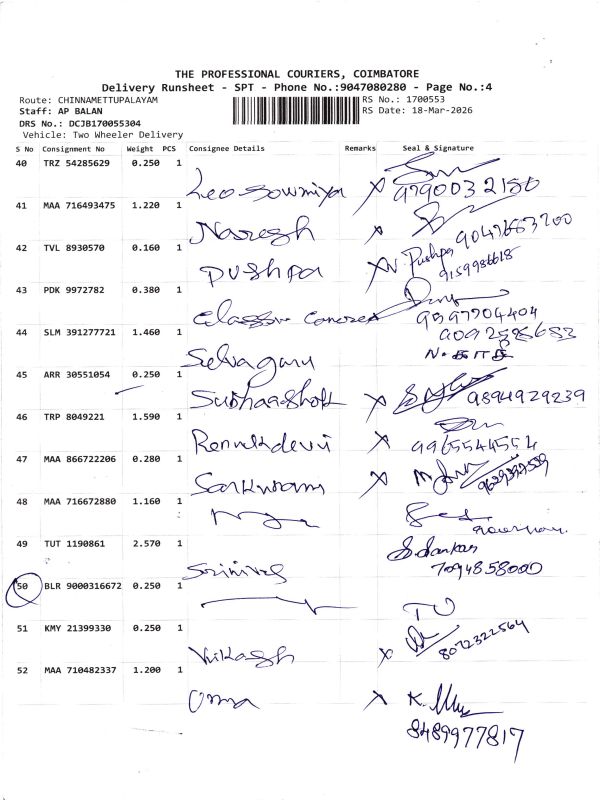 THE PROFESSIONAL COURIERS, COIMBATORE
Delivery Runsheet - SPT - Phone No.:9047080280 - Page No.:4
Route: CHINNAMETTUPALAYAM RS No.: 1700553
Staff: AP BALAN RS Date: 18-Mar-2026
DRS No.: DCJB170055304
Vehicle: Two Wheeler Delivery
S No Consignment No Weight PCS Consignee Details Remarks Seal & Signature
40 TRZ 54285629 0.250 1
Leo Sowmiya X 9790032150
41 MAA 716493475 1.220 1
Naresh X
42 TVL 8930570 0.160 1
Pushpa X N. Pushpa 9047663200
9159986618
43 PDK 9972782 0.380 1
9597704404
44 SLM 391277721 1.460 1
Selvaganu
45 ARR 30551054 0.250 1
X 9894929239
46 TRP 8049221 1.590 1
Renukdevi X 9965544554
47 MAA 866722206 0.280 1
X
48 MAA 716672880 1.160 1
49 TUT 1190861 2.570 1
Srinivas S. Sankar
7094858000
50 BLR 9000316672 0.250 1
51 KMY 21399330 0.250 1
Vikash X 8072322564
52 MAA 710482337 1.200 1
Uma X K.
8489977817